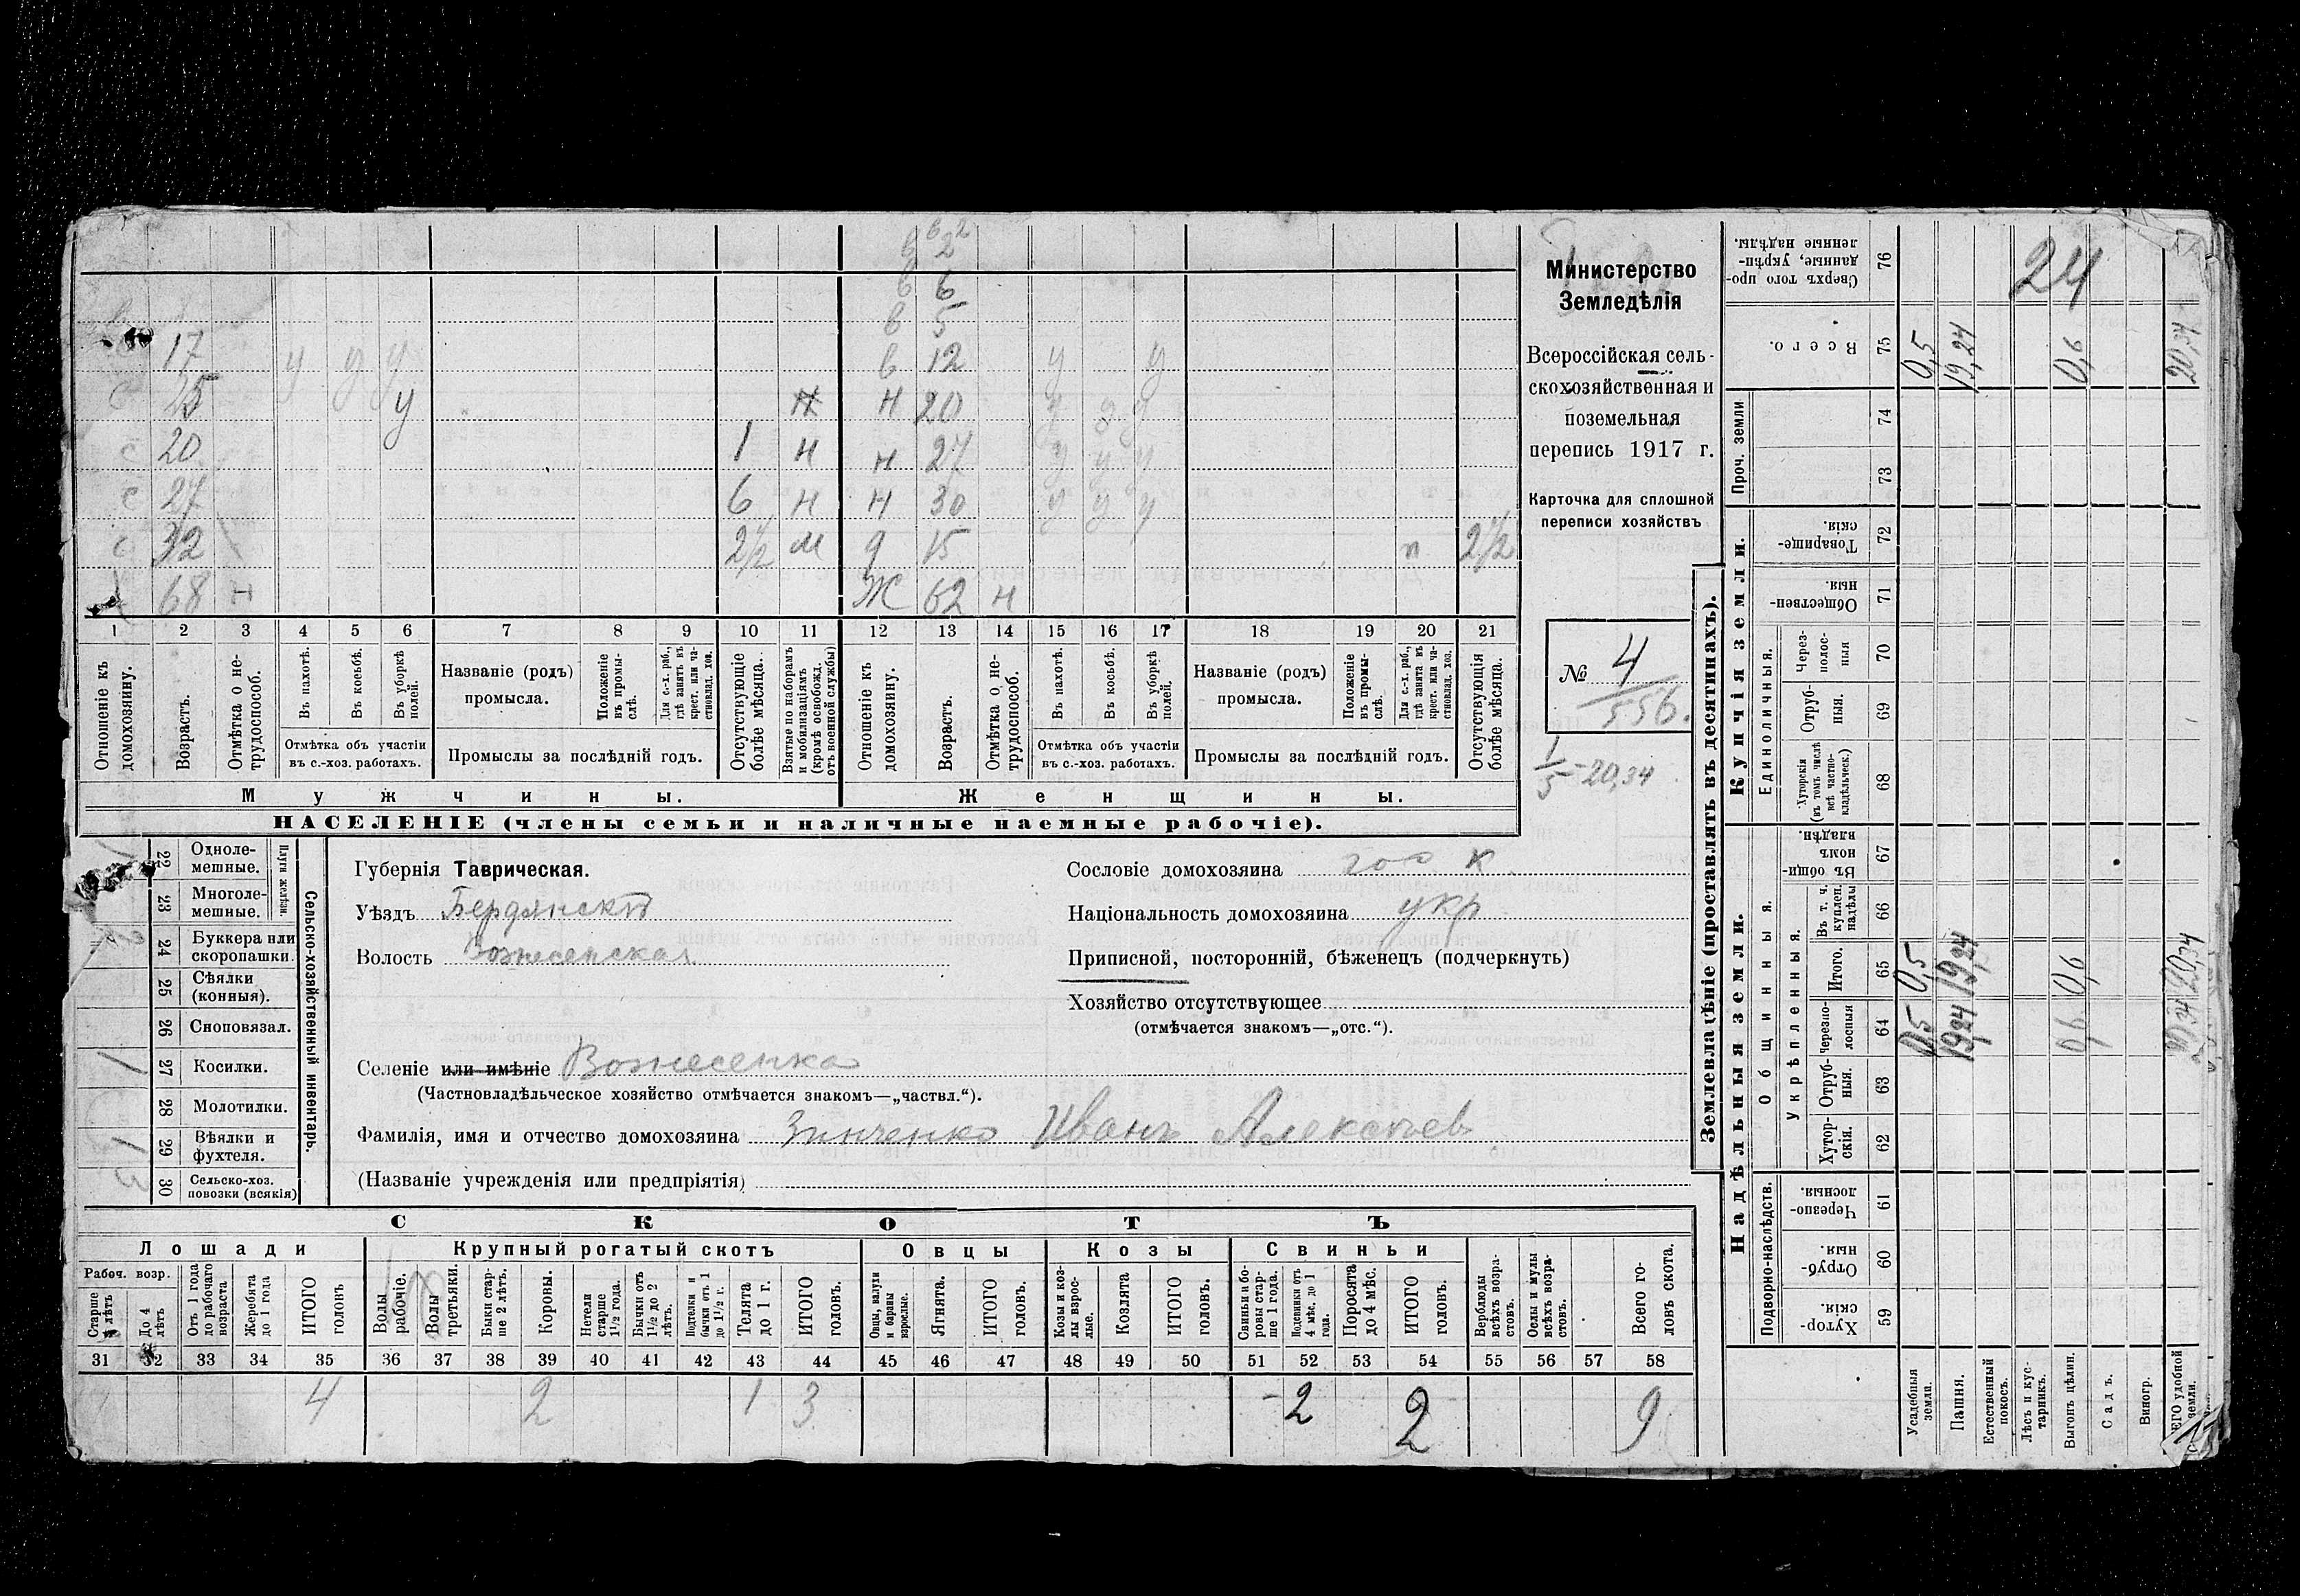 Министерство
Земледѣлія
Всероссійская сель-
скохозяйственная и
поземельная
перепись 1917 г.
Карточка для сплошной
переписи хозяйствъ
№ 4
556.
1/5 - 20,34
6 2
в 2
в 6
в 5
17 у у у в 12 у у
с 25 у н н 20 у у у
с 20 1 н н 27 у у у
с 27 6 н н 30 у у у
с 32 2 1/2 м д 15 п 2 1/2
68 н Ж 62 н
1 2 3 4 5 6 7 8 9 10 11 12 13 14 15 16 17 18 19 20 21
Отношеніе къ домохозяину.
Возрастъ.
Отмѣтка о не-трудоспособ.
Въ пахотѣ.
Въ косьбѣ.
Въ уборкѣ полей.
Отмѣтка объ участіи
въ с.-хоз. работахъ.
Названіе (родъ)
промысла.
Положеніе въ промы-слѣ.
Для с.-х. раб., гдѣ занятъ въ крест. или ча-стновлад. хоз.
Промыслы за послѣдній годъ.
Отсутствующіе болѣе мѣсяца.
Взятые по наборамъ и мобилизаціямъ (кромѣ освобожд. отъ военной службы)
Отношеніе къ домохозяину.
Возрастъ.
Отмѣтка о не-трудоспособ.
Въ пахотѣ.
Въ косьбѣ.
Въ уборкѣ полей.
Отмѣтка объ участіи
въ с.-хоз. работахъ.
Названіе (родъ)
промысла.
Положеніе въ промы-слѣ.
Для с.-х. раб., гдѣ занята въ крест. или ча-стновлад. хоз.
Промыслы за послѣдній годъ.
Отсутствующія болѣе мѣсяца.
Мужчины. Женщины.
НАСЕЛЕНІЕ (члены семьи и наличные наемные рабочіе).
Сельско-хозяйственный инвентарь.
Плуги желѣзн.
22 Однолe-мешные.
23 Многоле-мешные.
24 Буккера или скоропашки.
25 Сѣялки (конныя).
26 Сноповязал.
27 Косилки. 1
28 Молотилки.
29 Вѣялки и фухтеля. 1
30 Сельско-хоз. повозки (всякія) 3
Губернія Таврическая.
Уѣздъ Бердянскій
Волость Вознесенская
Селеніе или имѣніе Вознесенка
(Частновладѣльческое хозяйство отмѣчается знакомъ—„частвл.“).
Фамилія, имя и отчество домохозяина Зинченко Иванъ Алексѣев
(Названіе учрежденія или предпріятія)
Сословіе домохозяина гос. к.
Національность домохозяина укр
Приписной, посторонній, бѣженецъ (подчеркнуть)
Хозяйство отсутствующее
(отмѣчается знакомъ—„отс.“).
СКОТЪ
Лошади Крупный рогатый скотъ Овцы Козы Свиньи
Рабоч. возр.
Старше 4 лѣтъ
До 4 лѣтъ
Отъ 1 года до рабочаго возраста
Жеребята до 1 года
ИТОГО головъ
Волы рабочіе.
Волы третьяки.
Быки стар-ше 2 лѣтъ.
Коровы.
Нетели старше 1 1/2 года.
Бычки отъ 1 1/2 до 2 лѣтъ.
Подтелки и бычки отъ 1 до 1 1/2 г.
Телята до 1 г.
ИТОГО головъ.
Овцы, валухи и бараны взрослые.
Ягнята.
ИТОГО головъ.
Козы и коз-лы взрос-лые.
Козлята
ИТОГО головъ.
Свиньи и бо-ровы стар-ше 1 года.
Подсвинки отъ 4 мѣс. до 1 года.
Поросята до 4 мѣс.
ИТОГО головъ.
Верблюды всѣхъ возра-стовъ.
Ослы и мулы всѣхъ возра-стовъ.
Всего го-ловъ скота.
31 32 33 34 35 36 37 38 39 40 41 42 43 44 45 46 47 48 49 50 51 52 53 54 55 56 57 58
4 2 1 3 -2 2 9
Землевладѣніе (проставлять въ десятинахъ).
Купчія земли.
Надѣльныя земли.
Сверхъ того про-данные, укрѣп-ленные надѣлы. 76 24
Всего. 75 0,5 19,24 0,6 20,34
Проч. земли 74
73
Товарище-скія. 72
Обществен-ныя. 71
Единоличныя.
Через-полос-ныя 70
Отруб-ныя. 69
Хуторскія (въ томъ числѣ всѣ частно-владѣльческ.) 68
Общинныя.
Въ общин-номъ владѣн. 67
Укрѣпленныя.
Въ т. ч. куплен. надѣлы 66
Итого. 65 0,5 19,24 0,6 20,34
Черезпо-лосныя 64 0,5 19,24 0,6 20,34
Отруб-ныя. 63
Хутор-скія. 62
Подворно-наслѣдств.
Черезпо-лосныя. 61
Отруб-ныя. 60
Хутор-скія. 59
Усадебныя земли.
Пашня.
Естественный покосъ.
Лѣсъ и кус-тарникъ.
Выгонъ цѣлин.
Садъ.
Виногр.
ЕГО удобной земли.